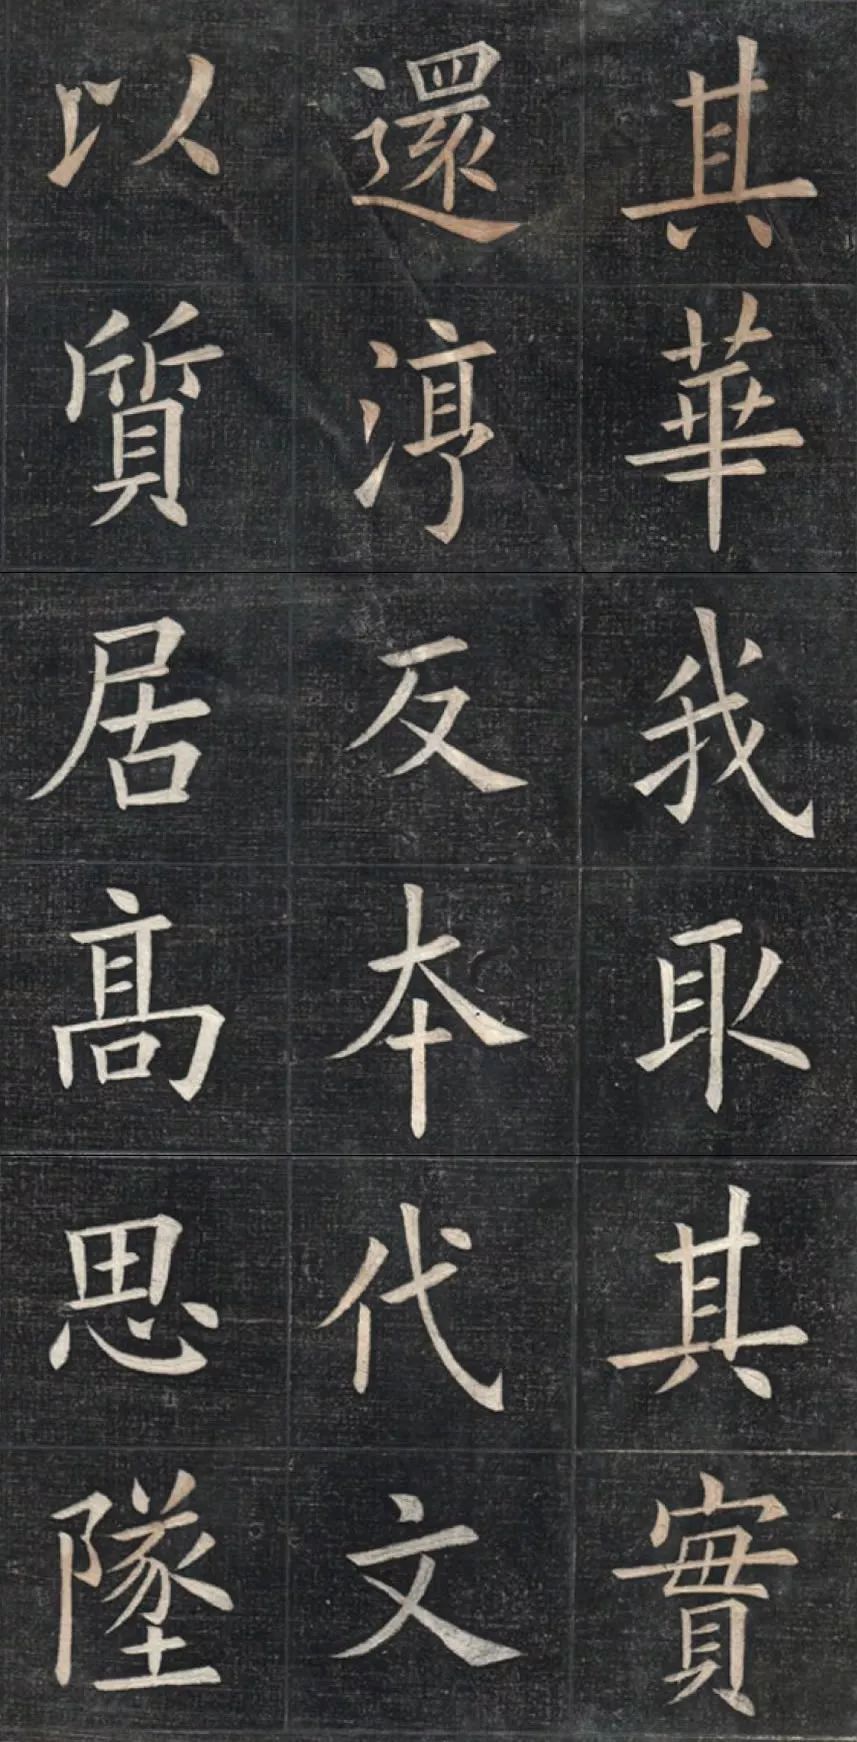 其華我取其實
還淳反本代文
以質居高思墜